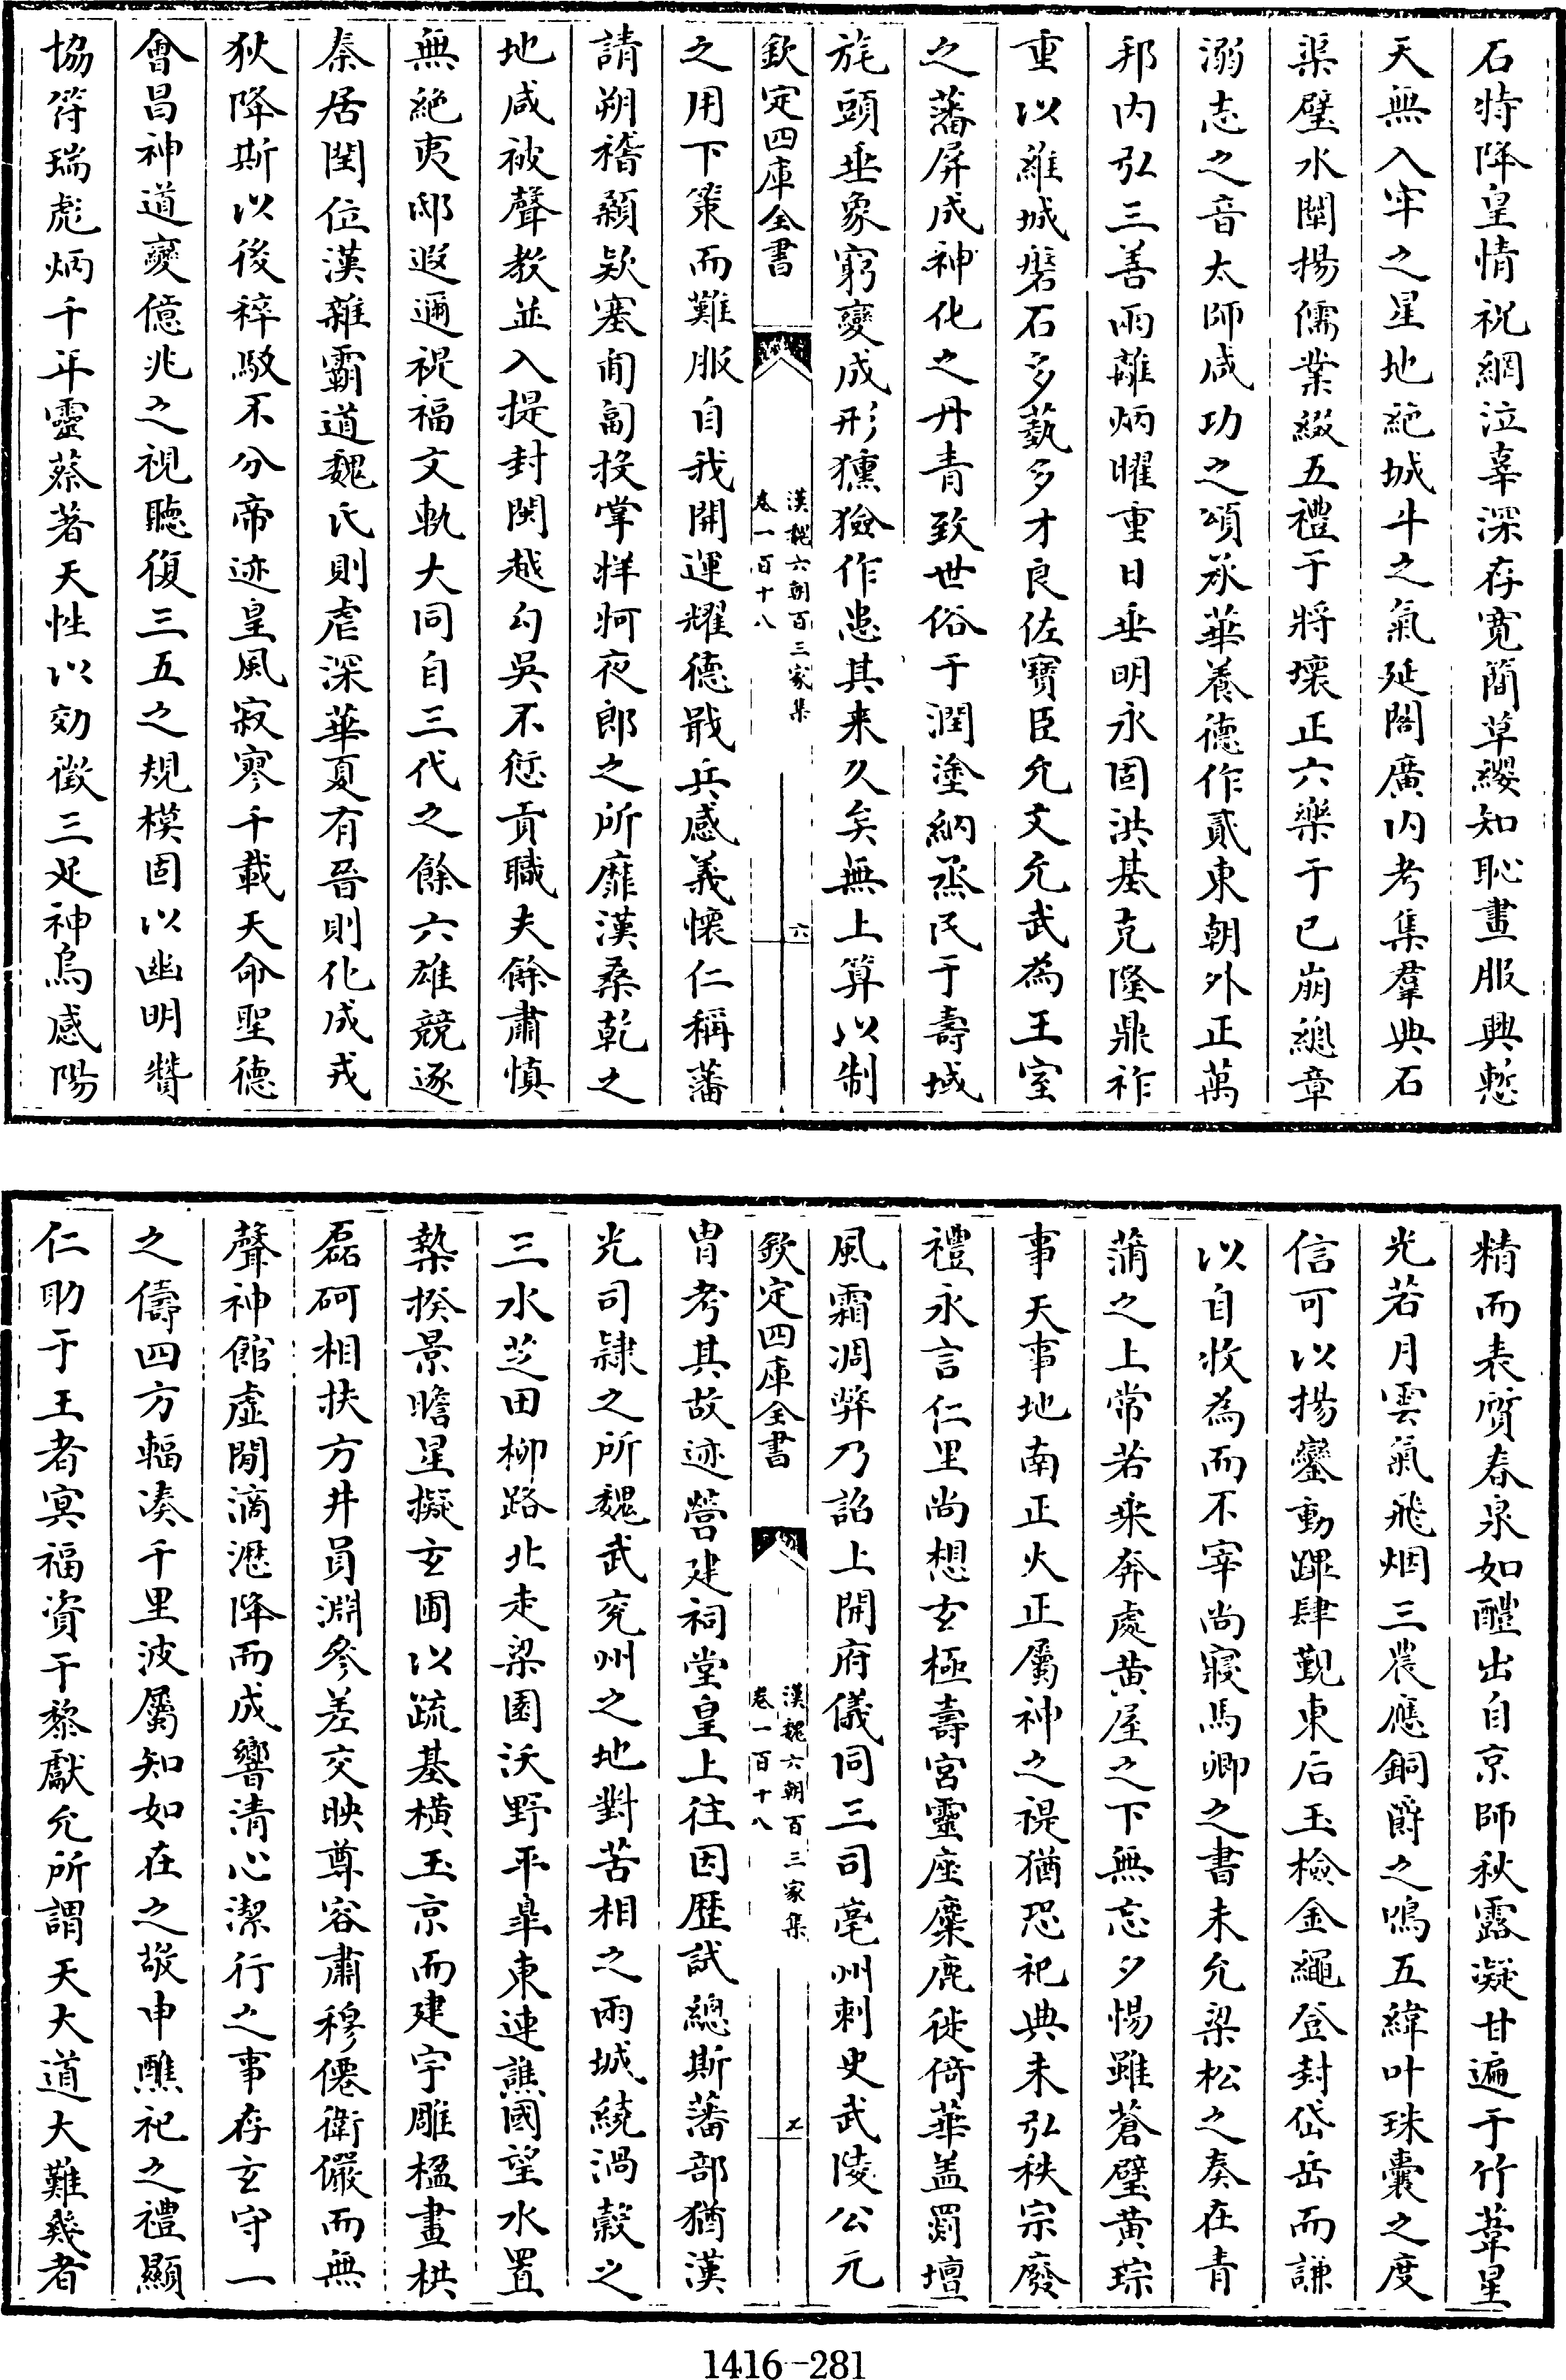 石特降皇情祝網泣辜深存寬簡草纓知恥畫服興慙
天無入牢之星地絶城斗之氣延閣廣内考集羣典石
渠璧水闡揚儒業綴五禮于將壞正六樂于已崩總章
溺志之音太師咸功之頌承華養德作貳東朝外正萬
邦内弘三善兩離炳曜重日垂明永固洪基克隆鼎祚
重以維城磐石多藝多才良佐寶臣允文允武為王室
之藩屏成神化之丹青致世俗于潤塗納烝民于壽域
旄頭垂象窮變成形獯獫作患其来久矣無上算以制
欽定四庫全書
漢魏六朝百三家集
卷一百十八
六
之用下策而難服自我開運耀德戢兵感義懷仁稱藩
請朔稽顙欵塞匍匐投掌牂牁夜郎之所靡漠桑乾之
地咸被聲教並入提封閩越勾吳不愆貢職夫餘肅慎
無絶夷邸遐邇禔福文軌大同自三代之餘六雄競逐
秦居閏位漢雜霸道魏氏則虐深華夏有晉則化成戎
狄降斯以後稡駮不分帝迹皇風寂寥千載天命聖德
會昌神道變億兆之視聽復三五之規模固以幽明贊
協符瑞彪炳千年靈蔡著天性以効徵三足神烏感陽
精而表質春泉如醴出自京師秋露凝甘遍于竹葦星
光若月雲氣飛烟三農應銅爵之鳴五緯叶珠囊之度
信可以揚鑾動蹕肆覲東后玉檢金繩登封岱岳而謙
以自收為而不宰尚寢馬卿之書未允梁松之奏在青
蒲之上常若乘奔處黄屋之下無忘夕惕雖蒼璧黄琮
事天事地南正火正屬神之禔猶恐祀典未弘秩宗廢
禮永言仁里尚想玄極壽宮靈座麋鹿徙倚華盖罽壇
風霜凋弊乃詔上開府儀同三司亳州刺史武陵公元
欽定四庫全書
漢魏六朝百三家集
卷一百十八
七
胄考其故迹營建祠堂皇上往因歷試總斯藩部猶漢
光司隸之所魏武兖州之地對苦相之兩城繞渦榖之
三水芝田柳路北走梁園沃野平臯東連譙國望水置
槷揆景瞻星擬玄圃以疏基横玉京而建宇雕楹畫栱
磊砢相扶方井員淵參差交映尊容肅穆僊衛儼而無
聲神館虚閒滴瀝降而成響清心潔行之事存玄守一
之儔四方輻凑千里波屬知如在之敬申醮祀之禮顯
仁助于王者冥福資于黎獻允所謂天大道大難幾者
1416—281